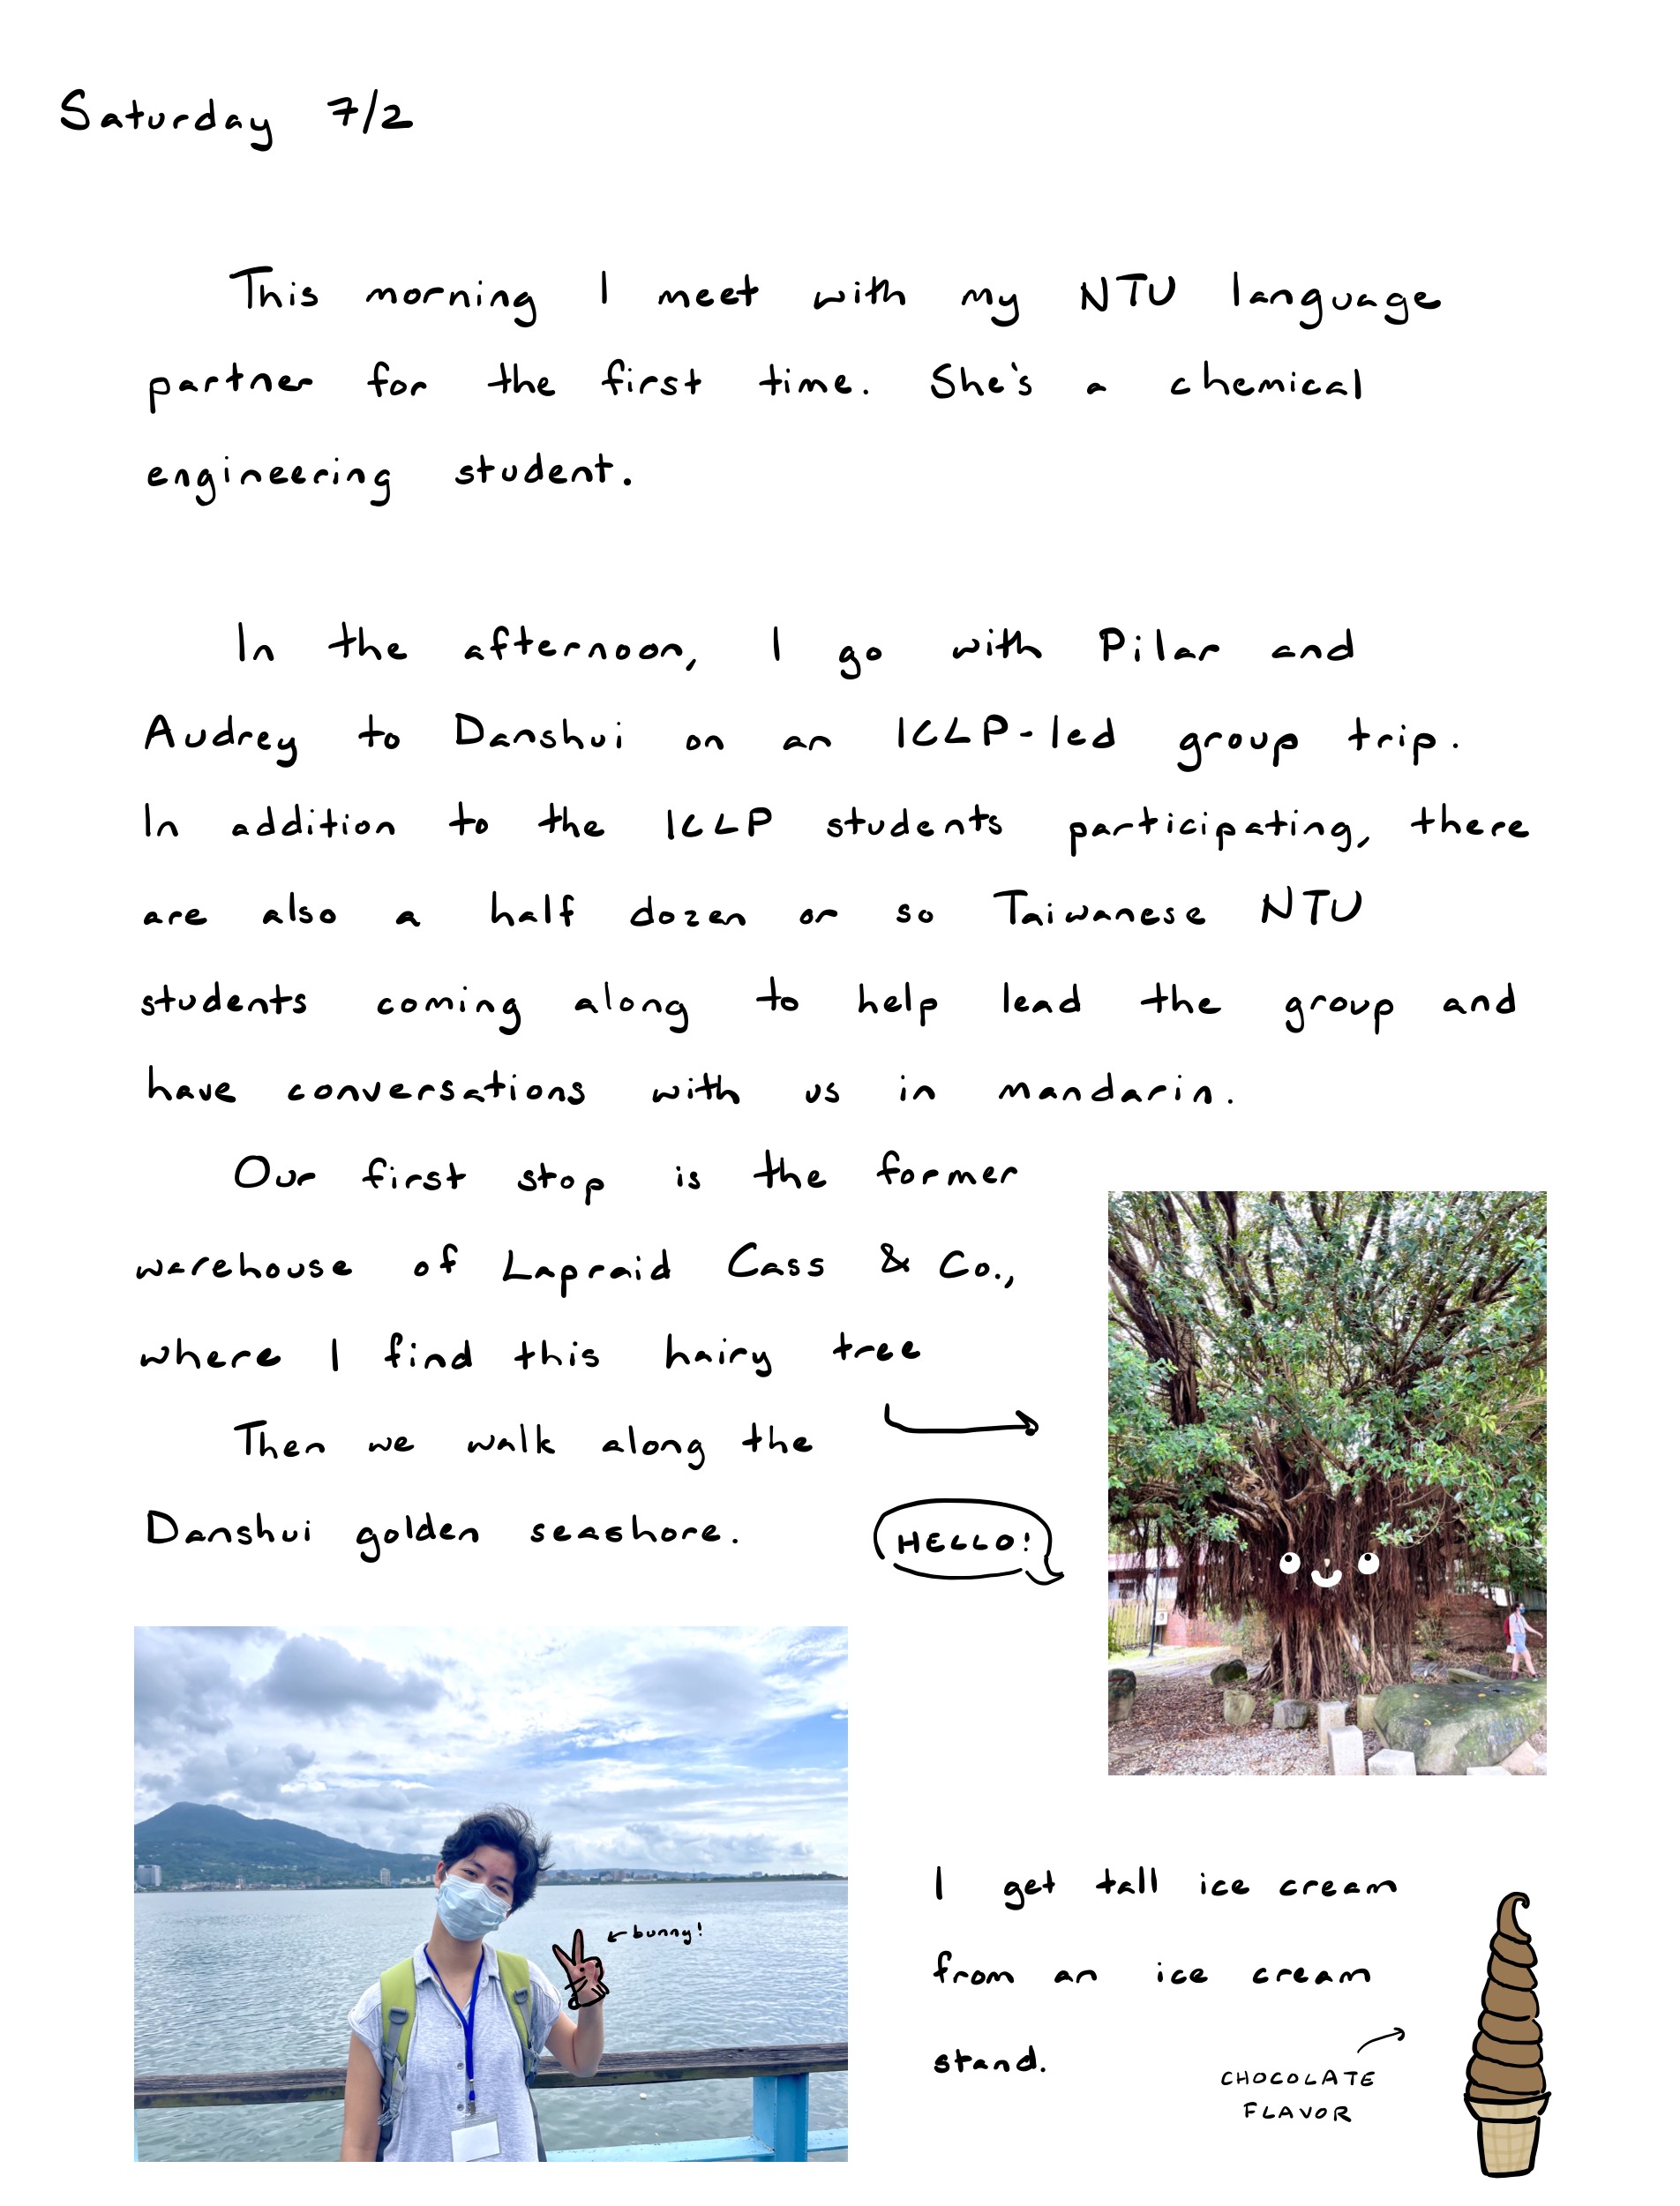 Saturday 7/2
This morning I meet with my NTU language
partner for the first time. She's a chemical
engineering student.
In the afternoon, I go with Pilar and
Audrey to Danshui on an ICLP-led group trip.
In addition to the ICLP students participating, there
are also a half dozen or so Taiwanese NTU
students coming along to help lead the group and
have conversations with us in mandarin.
Our first stop is the former
warehouse of Lapraid Cass & Co.,
where I find this hairy tree
Then we walk along the
Danshui golden seashore.
HELLO!
bunny!
I get tall ice cream
from an ice cream
stand.
CHOCOLATE
FLAVOR